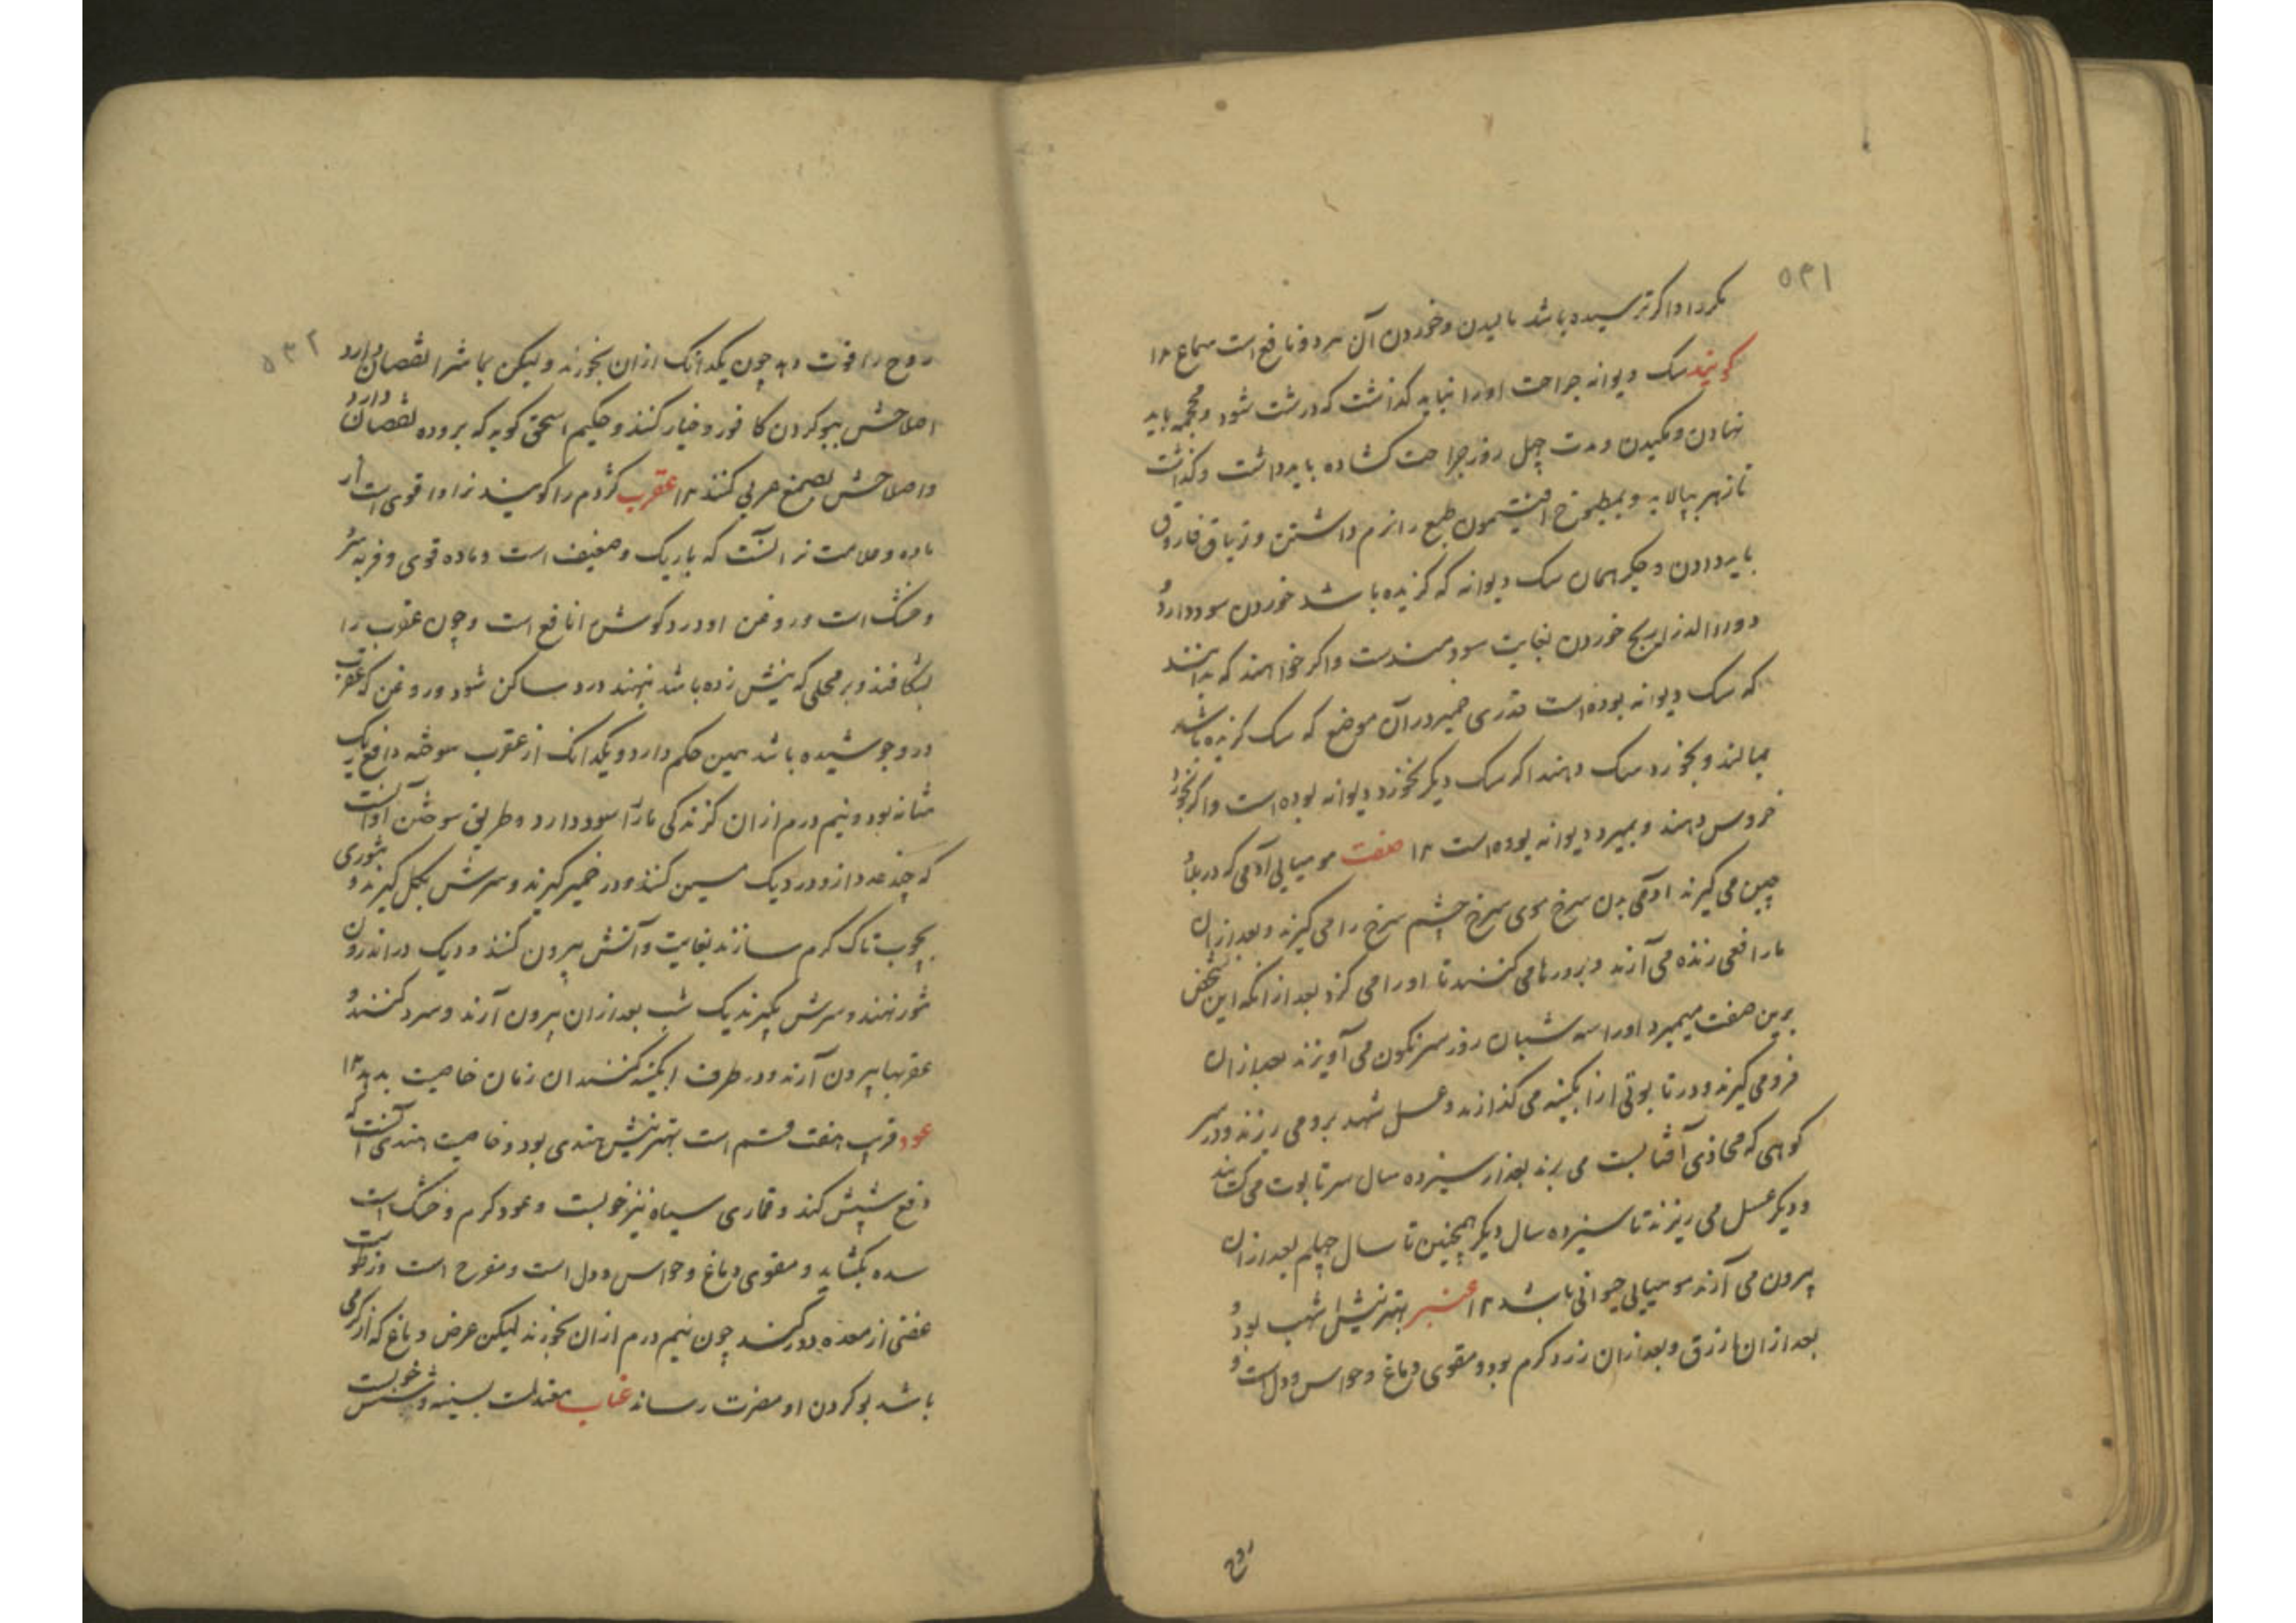 ۵۳۱
مکرر او اگر ترسیده باشد مالیدن و خوردن آن هر دو نافع است سماع ۱۲
گویند سک دیوانه جراحت اورا نباید کذاشت که درشت شود و محجمه باید
نهادن و مکیدن و مدت چهل روز جراحت کشاده باید داشت و کذاشت
تا زهر بپالاید و بمطبوخ افتیمون طبع را نرم داشتن و تریاق فاروق
باید دادن و جکر همان سک دیوانه که کزیده باشد خوردن سود دارد و
دواء الذراریح خوردن بغایت سودمندست و اکر خواهند که بدانند
که سک دیوانه بوده است قدری خمیر در آن موضع که سک کزیده باشد
بمالند و بخورد سک دهند اکر سک دیکر نخورد دیوانه بوده است و اکر بخورد
خروس دهند و بمیرد دیوانه بوده است ۱۲ صفت مومیایی آدمی که در بلاد
چین می کیرند آدمی بدن سرخ موی سرخ چشم سرخ را می کیرند و بعد از ان
مار افعی زنده می آرند و برو رها می کنند تا اورا می کزد بعد از انکه این شخص
برین صفت میمیرد اورا سه شبان روز سرنکون می آویزند بعد از ان
فرو می کیرند و در تابوتی از آبکینه می کذارند و عسل شهد برو می ریزند و در سر
کوهی که محاذی آفتابست می برند بعد از سیزده سال سر تابوت می کشایند
و دیکر عسل می ریزند تا سیزده سال دیکر همچنین تا سال چهلم بعد از ان
بیرون می آرند مومیایی حیوانی باشد ۱۲ عنبر بهترینش اشهب بود و
بعد از ان ازرق و بعد از ان زرد کرم بود و مقوی دماغ و حواس و دل است و
روح
۵۳۲
روح را قوت دهد چون یکدانک از ان بخورند ولیکن بماشرا نقصان دارد
اصلاحش ببو کردن کافور و خیار کنند و حکیم اسحق کوید که بروده نقصان دارد
و اصلاحش بصمغ عربی کنند ۱۲ عقرب کژدم را کویند نر او اقوی است از
ماده و علامت نر آنست که باریک و ضعیف است و ماده قوی و فربه سرد
و خشک است و روغن او درد کوش را نافع است و چون عقرب را
بشکافند و بر محلی که نیش زده باشد نهند درد ساکن شود و روغن که عقرب
درو جوشیده باشد همین حکم دارد و یکدانک از عقرب سوخته دافع ریک
مثانه بود و نیم درم از ان کزندکی مار را سود دارد و طریق سوختن او آنست
که چند عدد از و در دیک مسین کنند و در خمیر کیرند و سرش بکل کیرند و تنوری
بچوب تاک کرم سازند بغایت و آتش بیرون کنند و دیک در اندرون
تنور نهند و سرش بکیرند یک شب بعد از ان بیرون آرند و سرد کنند و
عقربها بیرون آرند و در ظرف آبکینه کنند ان زمان خاصیت بدهد ۱۲
عود قریب هفت قسم است بهترینش هندی بود و خاصیت هندی آنست که
دفع شپش کند و قماری سیاه نیز خوبست و عود کرم و خشک است
سده بکشاید و مقوی دماغ و حواس و دل است و مفرح است و رطوبت
عفنی از معده دور کند چون نیم درم از ان بخورند لیکن مرض دماغ که از کرمی
باشد بو کردن او مضرت رساند عناب معتدلست بسینه و شش خوبست